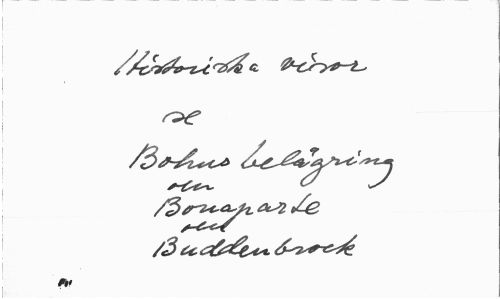 Historiska visor
se
Bohus belägring
om
Bonaparte
om
Buddenbrock